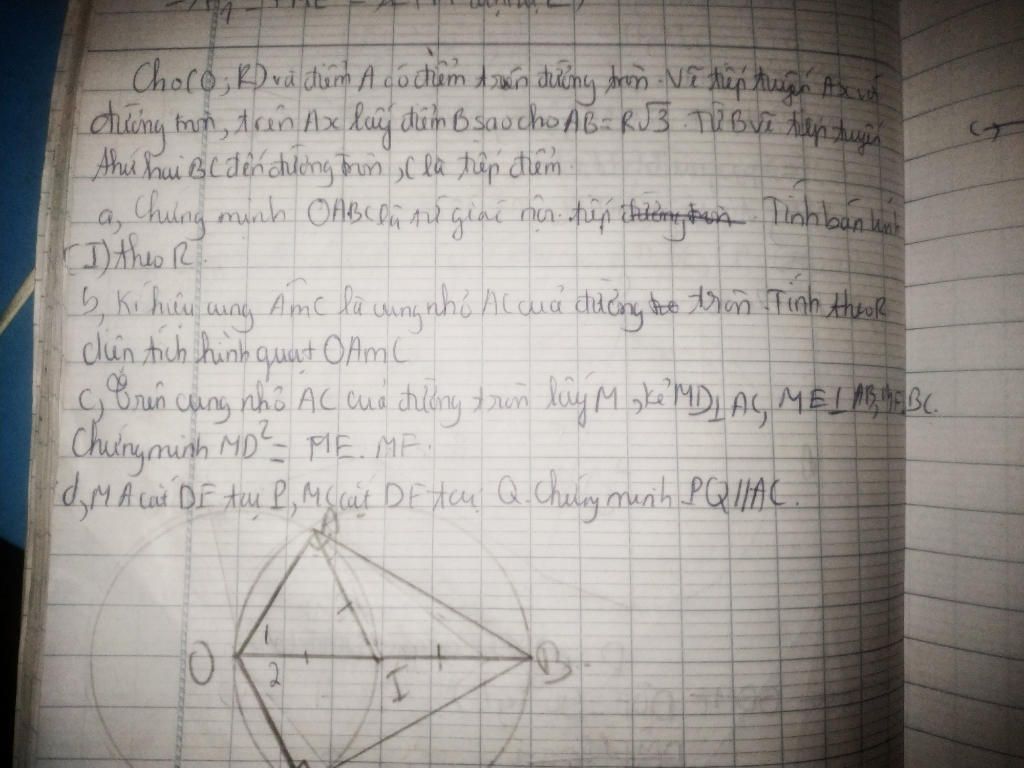 Cho (O; R) và điểm A cố điểm trên đường tròn. Vẽ tiếp tuyến Ax với
đường tròn, trên Ax lấy điểm B sao cho AB = R√3. Từ B vẽ tiếp tuyến
thứ hai BC đến đường tròn, C là tiếp điểm.
a, Chứng minh OABC là tứ giác nội tiếp đường tròn. Tính bán kính
(I) theo R.
b, Kí hiệu cung AmC là cung nhỏ AC của đường tròn. Tính theo R
diện tích hình quạt OAmC
c, Trên cung nhỏ AC của đường tròn lấy M, kẻ MD⊥AC, ME⊥AB, MF BC.
Chứng minh MD² = ME. MF.
d, MA cắt DE tại P, MC cắt DF tại Q. Chứng minh PQ//AC.
A
1
O I B
2